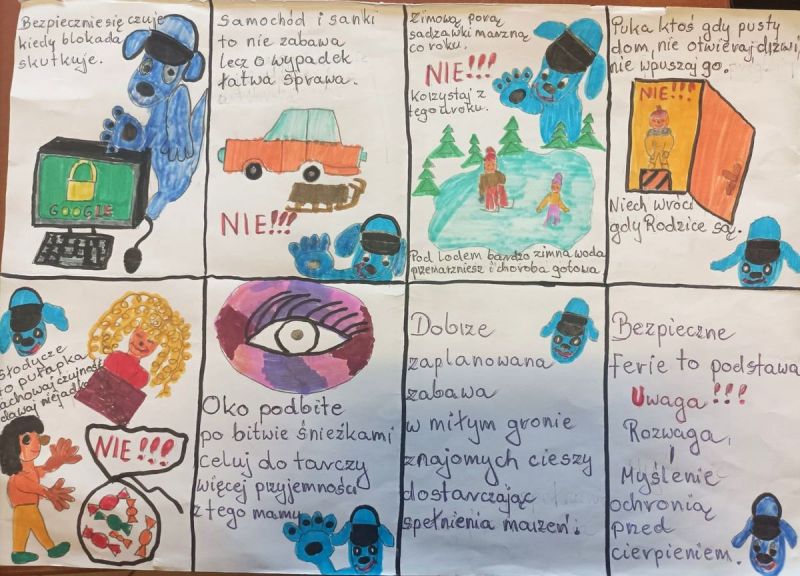 Bezpiecznie się czuję
kiedy blokada
skutkuje.
GOOGLE
Samochód i sanki
to nie zabawa
lecz o wypadek
łatwa sprawa.
NIE!!!
Zimową porą
sadzawki marzną
co roku.
NIE!!!
Korzystaj z
tego uroku.
Pod lodem bardzo zimna woda
przemarzniesz i choroba gotowa
Puka ktoś gdy pusty
dom, nie otwieraj drzwi,
nie wpuszaj go.
NIE!!!
Niech wróci
gdy Rodzice są.
Słodycze
to pułapka
zachowaj czujność
dawaj niejadka
NIE!!!
Oko podbite
po bitwie śnieżkami
celuj do tarczy
więcej przyjemności
z tego mamy
Dobrze
zaplanowana
zabawa
w miłym gronie
znajomych cieszy
dostarczając
spełnienia marzeń.
Bezpieczne
ferie to podstawa
Uwaga!!!
Rozwaga,
i
Myślenie
ochronią
przed
cierpieniem.